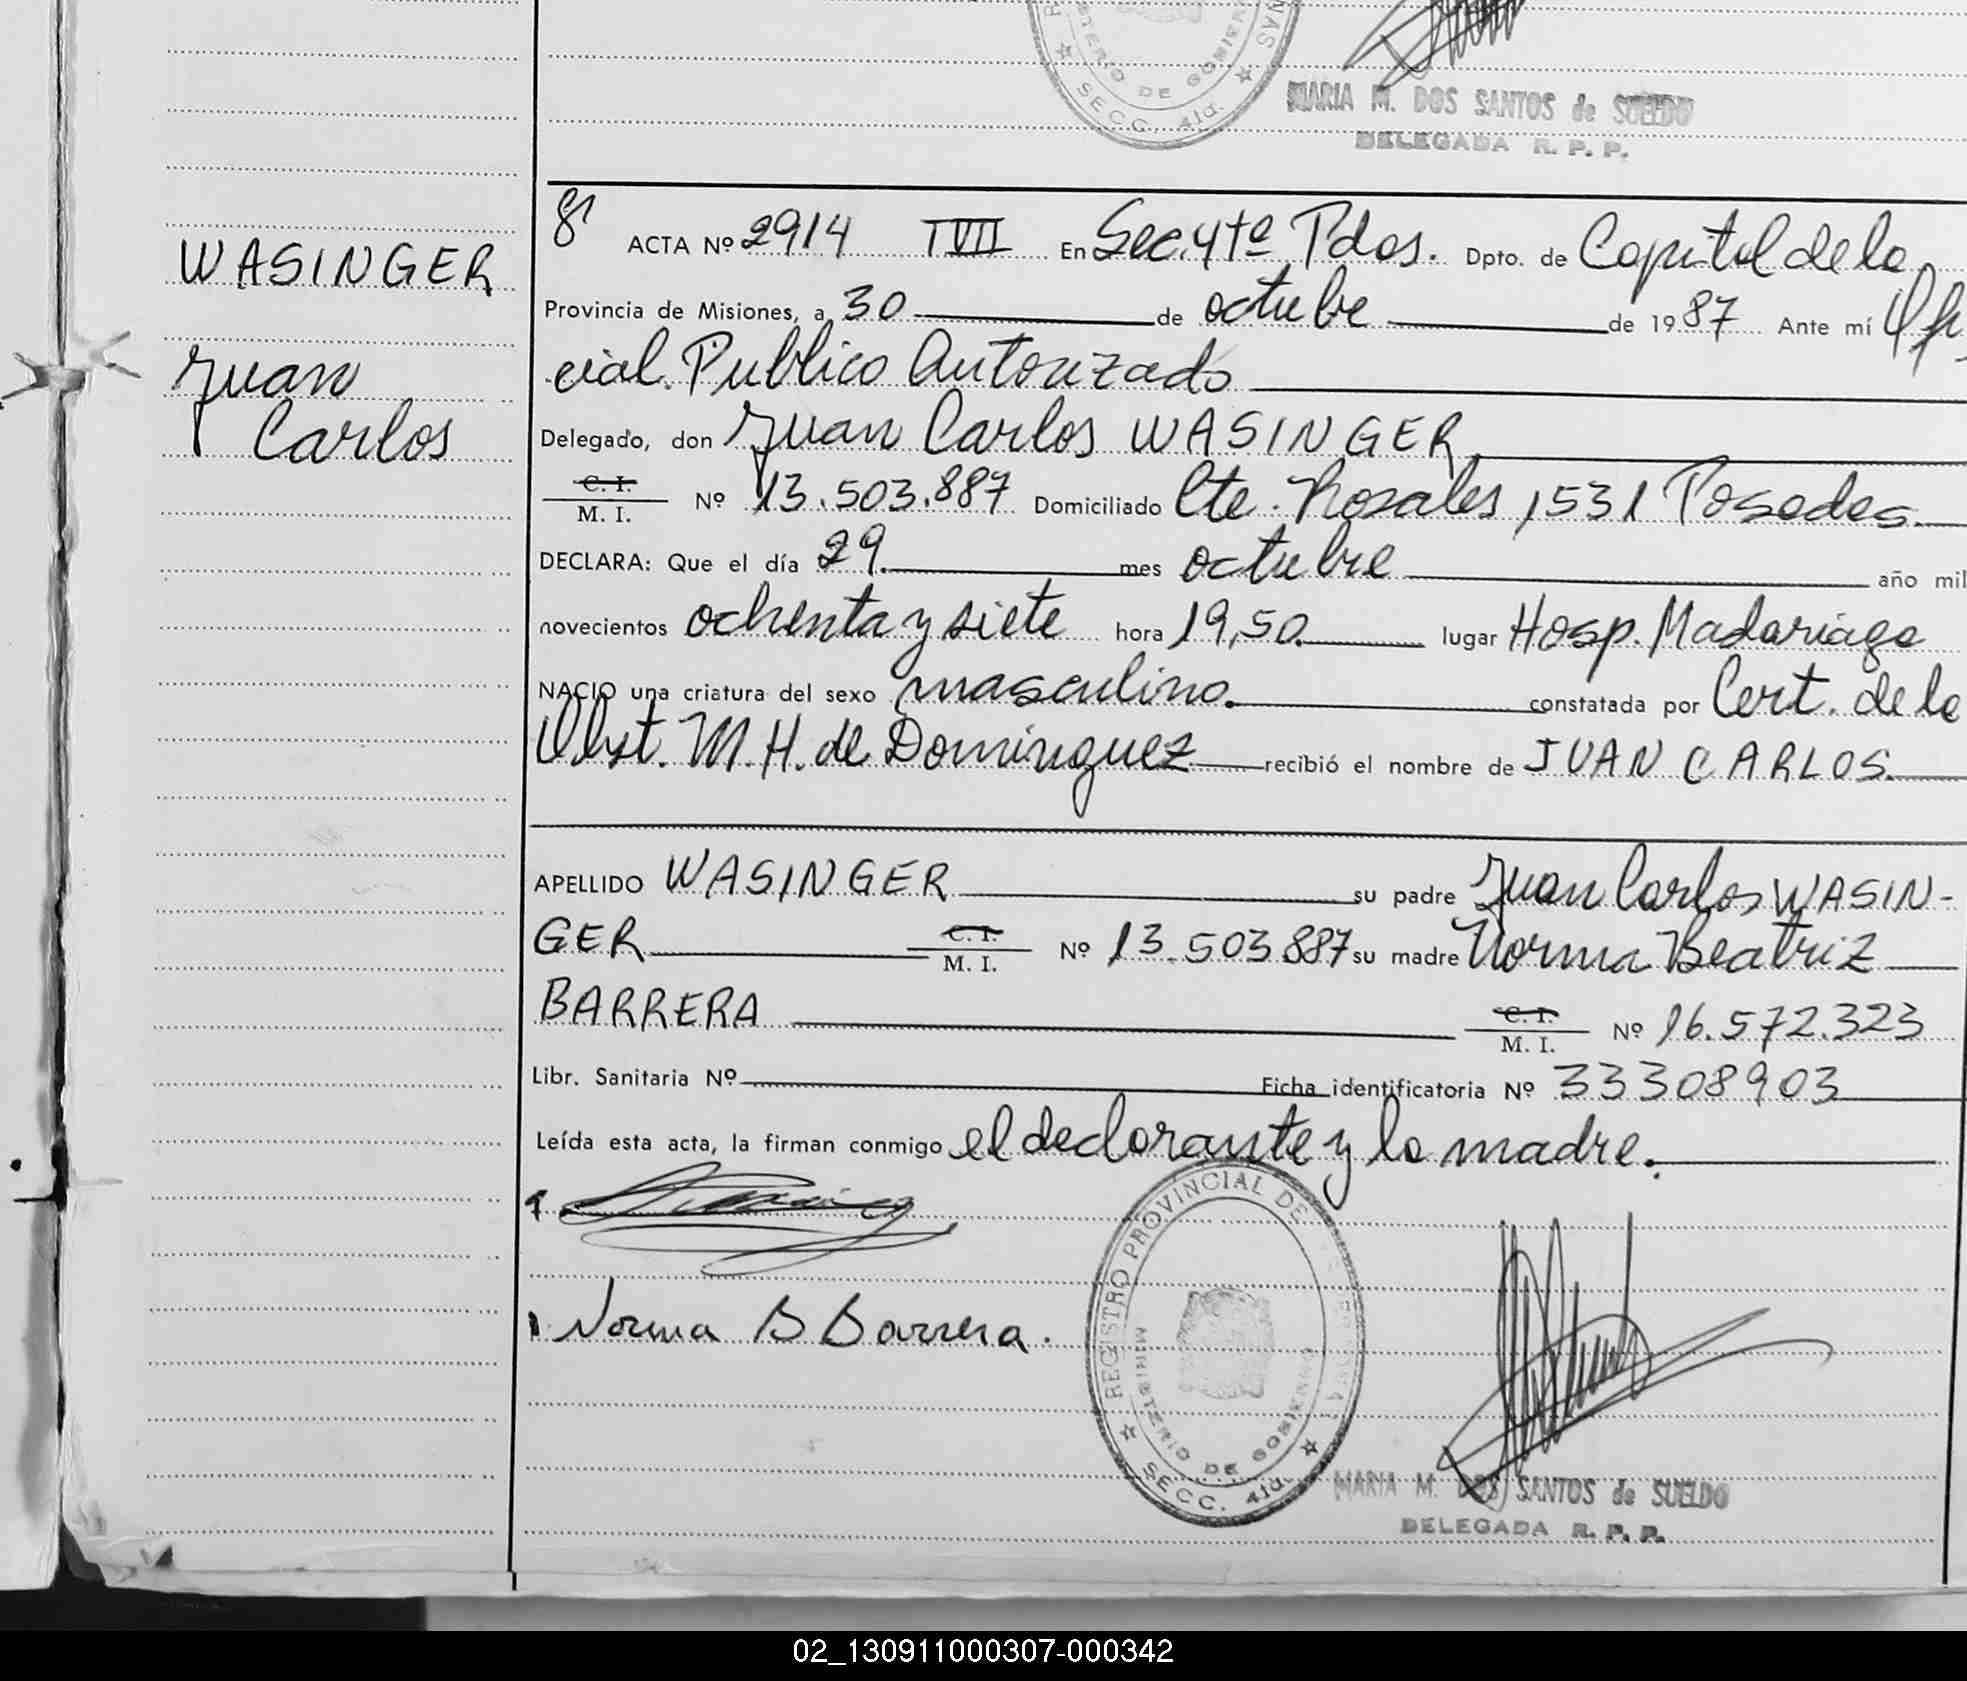 MARIA M. DOS SANTOS de SUELDO
DELEGADA R. P. P.
SECC. 4ta.
WASINGER
Juan
Carlos
ACTA Nº 2914 TVII En Sec. 4ta Pdos. Dpto. de Capital de la
Provincia de Misiones, a 30 de octubre de 1987 Ante mí Ofi
cial Publico Autorizado
Delegado, don Juan Carlos WASINGER
C. I.
M. I. Nº 13.503.887 Domiciliado Cte. Rosales 1531 Posadas.
DECLARA: Que el día 29 mes octubre año mil
novecientos ochenta y siete hora 19,50 lugar Hosp. Madariaga
NACIO una criatura del sexo masculino. constatada por Cert. de la
Obst. M. H. de Dominguez recibió el nombre de JUAN CARLOS.
APELLIDO WASINGER su padre Juan Carlos WASIN-
GER C. I. M. I. Nº 13.503.887 su madre Norma Beatriz
BARRERA C. I. M. I. Nº 16.572.323
Libr. Sanitaria Nº Ficha identificatoria Nº 33308903
Leída esta acta, la firman conmigo el declarante y la madre.
Norma B Barrera.
REGISTRO PROVINCIAL DE
MINISTERIO DE GOBIERNO
SECC. 4ta.
MARIA M. DOS SANTOS de SUELDO
DELEGADA R. P. P.
02_130911000307-000342